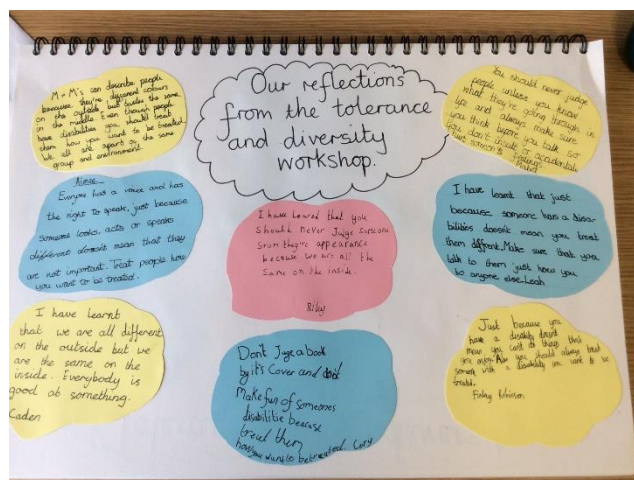 Our reflections
from the tolerance
and diversity
workshop.
M+M's can describe people
because they're different colours
on the outside but the same
in the middle. Even though people
have disabilities you should treat
them how you want to be treated.
We all are apart of the same
group and environment.
You should never judge
people unless you know
what they're going through in
life and always make sure
you think before you talk so
you don't insult or accidentaly
hurt someone's feelings
Aimee
Everyone has a voice and has
the right to speak, just because
someone looks, acts or speaks
different doesn't mean that they
are not important. Treat people how
you want to be treated.
I have learned that you
should never Judge someone
they're appearance
because we are all the
same on the inside.
Riley
I have learnt that just
because someone has a disa-
bilities doesn't mean you treat
them different. Make sure that you
talk to them just how you
to anyone else. Leah
I have Learnt
that we are all different
on the outside but we
are the same on the
inside. Everybody is
good at something.
Caden
Don't Juge a book
by it's Cover and
Make fun of someones
disabilitie because
treat them
how you want to be treated. Cory
Just because you
have a disability
mean you can't do things that
you enjoy. you should always treat
someone with a disability you want to be
treated.
Finlay Robinson